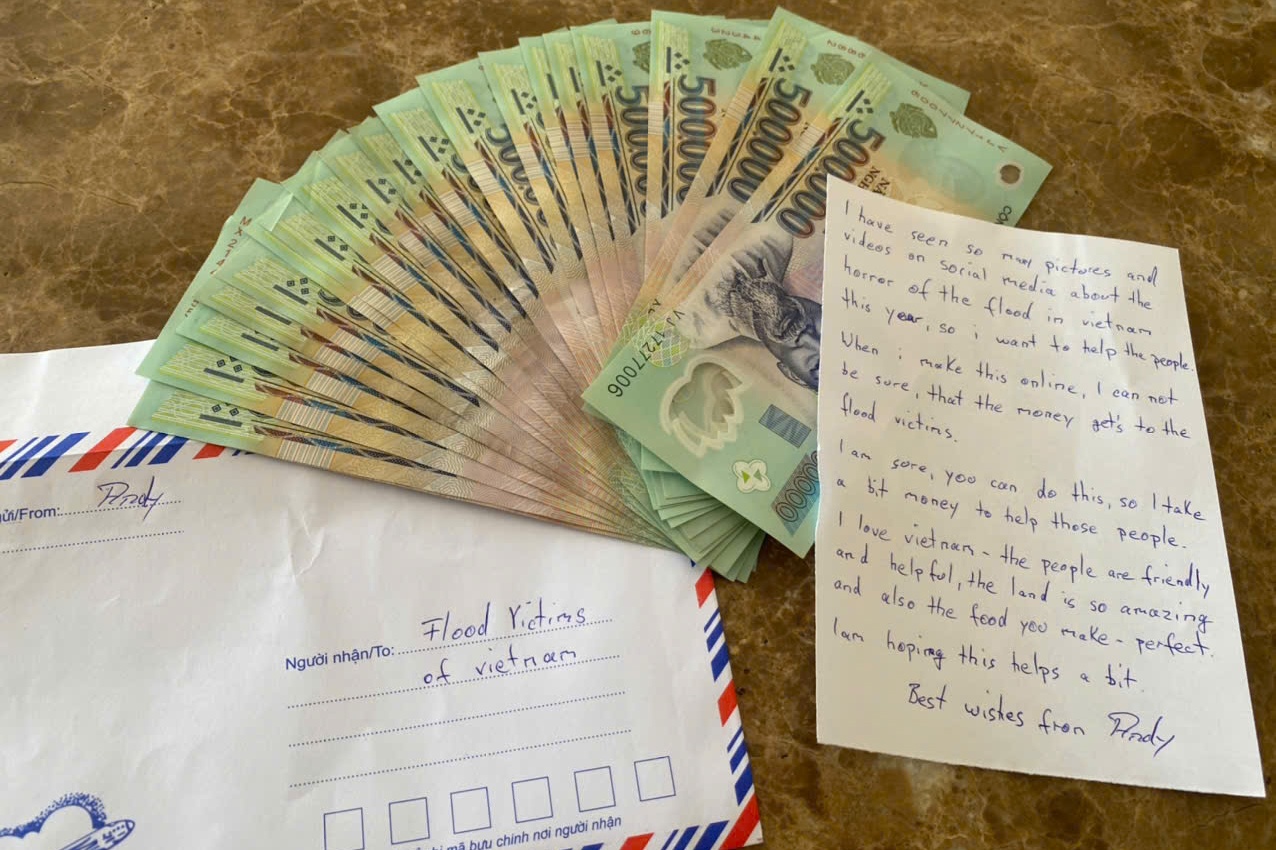 500000
500000
500000
500000
VJ 7277006
I have seen so many pictures and
videos on social media about the
horror of the flood in vietnam
this year, so i want to help the people.
When i make this online, I can not
be sure, that the money get's to the
flood victims.
I am sure, you can do this, so I take
a bit money to help those people.
I love vietnam - the people are friendly
and helpful, the land is so amazing
and also the food you make - perfect.
I am hoping this helps a bit.
Best wishes from Andy
gửi/From: Andy
Người nhận/To: Flood Victims
of vietnam
mã bưu chính nơi người nhận